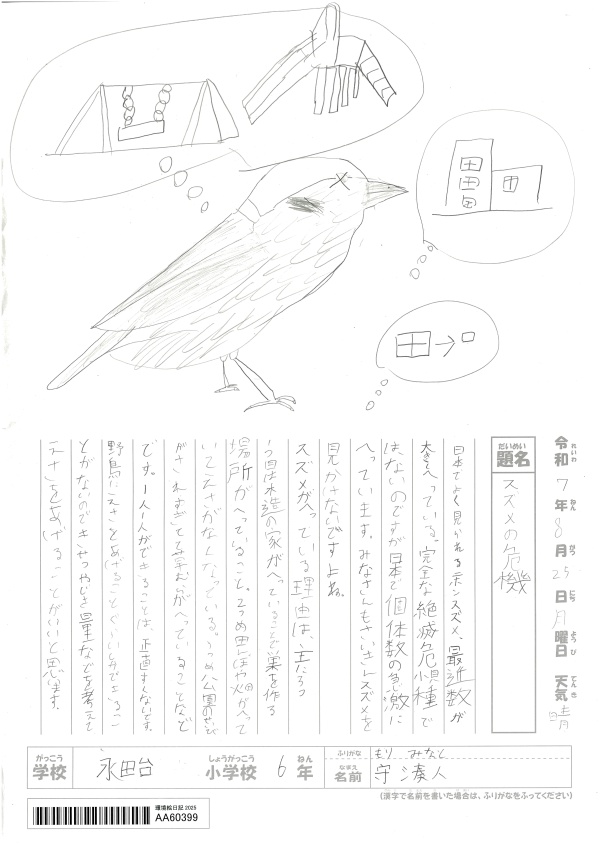 令和7年8月25日月曜日 天気 晴
れいわ ねん がつ にち ようび てんき
だいめい
題名
スズメの危機
日本でよく見られるホンスズメ、最近数が
大きくへっている。完全な絶滅危惧種で
はないのですが日本で個体数の急激に
へっています。みなさんもさいきんスズメを
見かけないですよね。
スズメがへっている理由は、主に3つ
1つ目木造の家がへっていることで巣を作る
場所がへっていること。2つめ田んぼや畑がへって
いてえさがなくなっている。3つめ公園のせいび
がされすぎてて草むらがへっていることなど
です。1人1人ができることは、正直すくないです。
野鳥にえさをあげることぐらいで
とがないのできせつやじき量などを考えて
えさをあげることがいいと思います。
がっこう
学校
永田台
しょうがっこう
小学校
6
ねん
年
ふりがな
もり みなと
なまえ
名前
守 湊人
(漢字で名前を書いた場合は、ふりがなをふってください)
環境絵日記 2025
AA60399